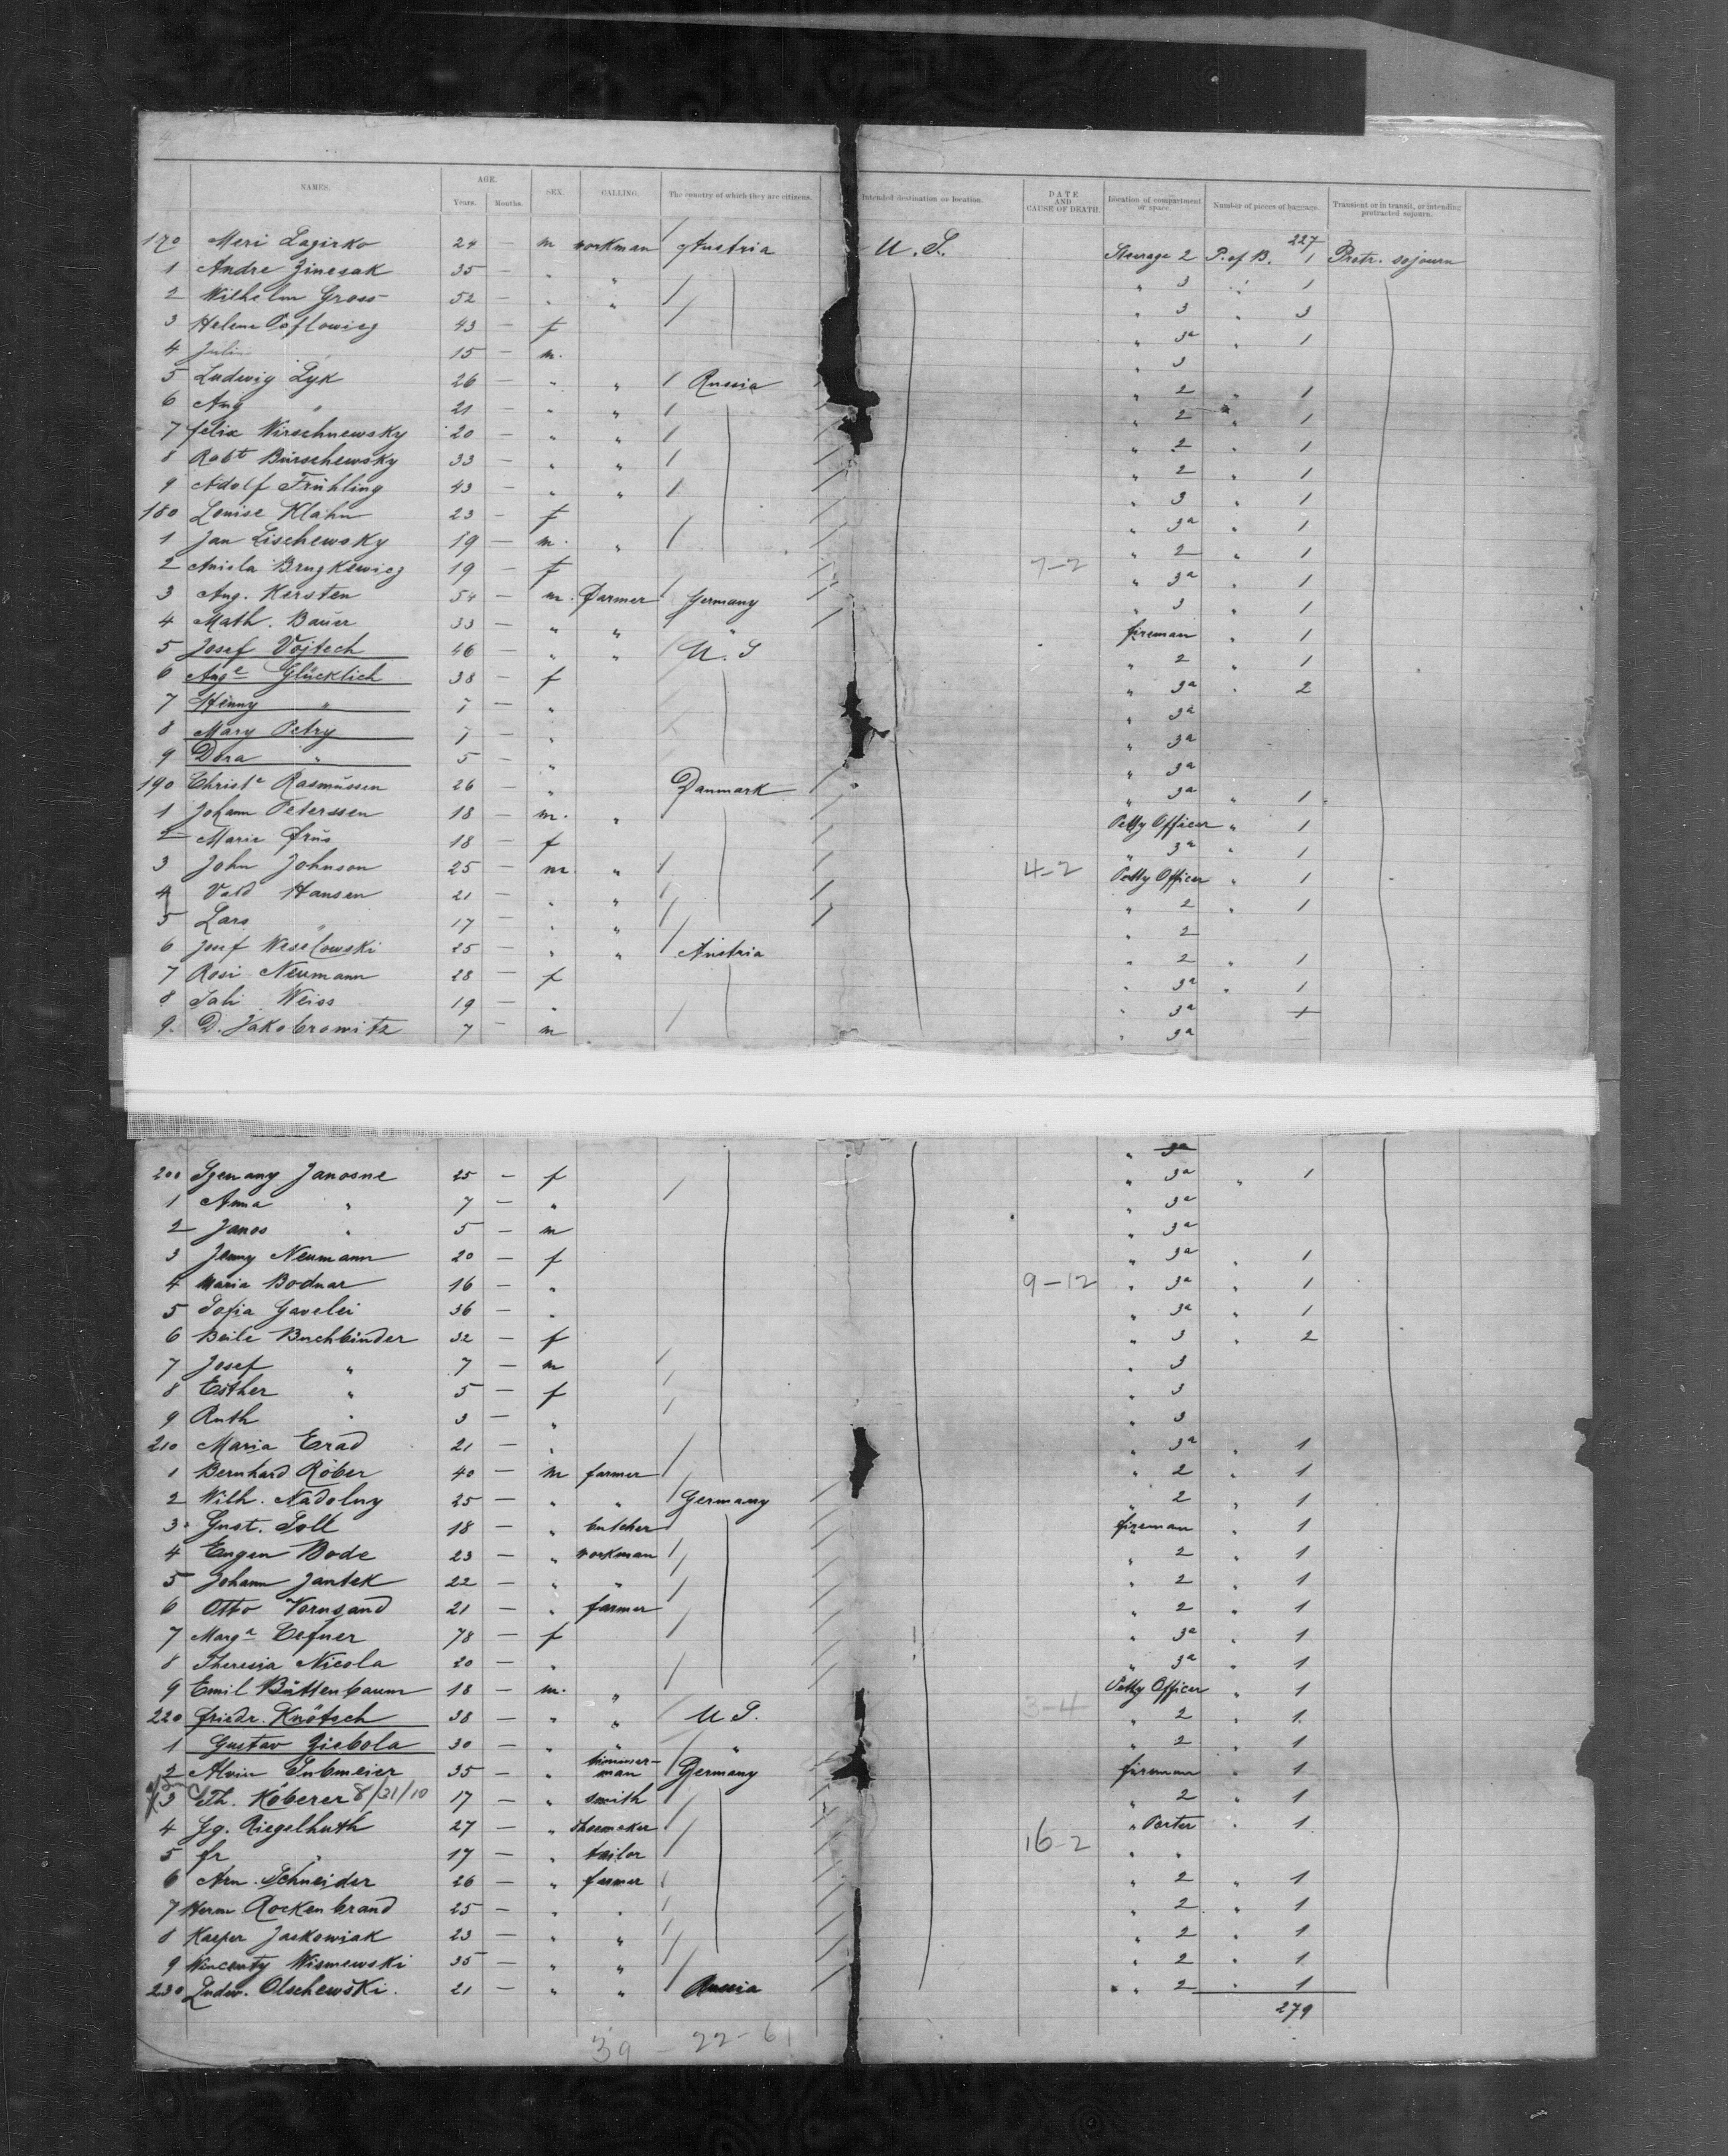 NAMES. AGE. Years. Months. SEX. CALLING. The country of which they are citizens. Intended destination or location. DATE AND CAUSE OF DEATH. Location of compartment or space. Number of pieces of baggage. Transient or in transit, or intending protracted sojourn.
227
170 Meri Lagirko 24 — m workman Austria U. S. Steerage 2 P. of B. 1 Protr. sojourn
1 Andre 35 — " " " 3 " 1
2 Wilhelm Gross 52 — " " " 3 " 3
3 Helene 43 — f " 3a " 1
4 Julius 15 — m. " 3
5 Ludwig Lyk 26 — " " Russia " 2 " 1
6 Aug " 21 — " " " 2 " 1
7 Felix Wirschnewsky 20 — " " " 2 " 1
8 Robt Burschewsky 33 — " " " 2 " 1
9 Adolf Frühling 43 — " " " 3 " 1
180 Louise Klahn 23 — f " 3a " 1
1 Jan Lischewsky 19 — m. " " 2 " 1
2 Aniela Brugkewicz 19 — f 7-2 " 3a " 1
3 Aug. Kersten 54 — m. Farmer Germany " 3 " 1
4 Math. Bauer 33 — " " " fireman " 1
5 Josef Vojtech 46 — " " U. S " 2 " 1
6 Auge Glücklich 38 — f " 3a " 2
7 Henny " 7 — " " 3a
8 Mary Petry 7 — " " 3a
9 Dora " 5 — " " 3a
190 Christe Rasmussen 26 — " Danmark " 3a " 1
1 Johann Peterssen 18 — m. " Petty Officer " 1
2 Marie Frus 18 — f " 3a " 1
3 John Johnson 25 — m. " 4-2 Petty Officer " 1
4 Vald Hansen 21 — " " " 2 " 1
5 Lars " 17 — " " " 2
6 Josef Weselowski 25 — " " Austria " 2 " 1
7 Rosi Neumann 28 — f " 3a " 1
8 Sali Weiss 19 — " " 3a 1
9 D. Jakobrowitz 7 — m " 3a
" 3a
200 Szemany Janosne 25 — f " 3a " 1
1 Anna " 7 — " " 3a
2 Janos " 5 — m " 3a
3 Jenny Neumann 20 — f " 3a " 1
4 Maria Bodnar 16 — " 9-12 " 3a " 1
5 Sofia Gavelei 36 — " " 3a " 1
6 Beile Buchbinder 32 — f " 3 " 2
7 Josef " 7 — m " 3
8 Esther " 5 — f " 3
9 Ruth " 3 — " " 3
210 Maria Erad 21 — " " 3a " 1
1 Bernhard Röber 40 — m farmer " 2 " 1
2 Wilh. Nadolny 25 — " " Germany " 2 " 1
3 Gust. Toll 18 — " butcher fireman " 1
4 Eugen Bode 23 — " workman " 2 " 1
5 Johann Jantek 22 — " " " 2 " 1
6 Otto Vornsand 21 — " farmer " 2 " 1
7 Marga 78 — f " 3a " 1
8 Theresia Nicola 20 — " " 3a " 1
9 Emil Büttenbaum 18 — m. " Petty Officer " 1
220 Friedr. Knötsch 38 — " " U S. 3-4 " 2 " 1
1 Gustav Ziebola 30 — " " " " 2 " 1
2 Alvin Submeier 35 — " timmerman Germany fireman " 1
3 Th. Köberer 8/31/10 17 — " smith " 2 " 1
4 Gg. Riegelhuth 27 — " Shoemaker " Porter " 1
5 fr " 17 — " tailor 16-2 " "
6 Arn. Schneider 26 — " farmer " 2 " 1
7 Herm. Rockenbrand 25 — " " " 2 " 1
8 Kasper Jaskowiak 23 — " " " 2 " 1
9 Wincenty Wismewski 35 — " " " 2 " 1
230 Ludw. Olschewski. 21 — " " Russia " 2 " 1
279
39 - 22 - 61